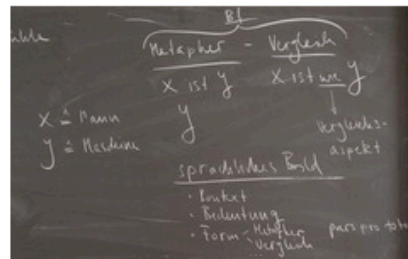 Metapher - Vergleich
X ist Y X ist wie Y
Y
X ≙ Mann
Y ≙ Maschine
Vergleichs-
aspekt
sprachliches Bild
• Kontext
• Bedeutung
• Form - Metapher
Vergleich
pars pro toto